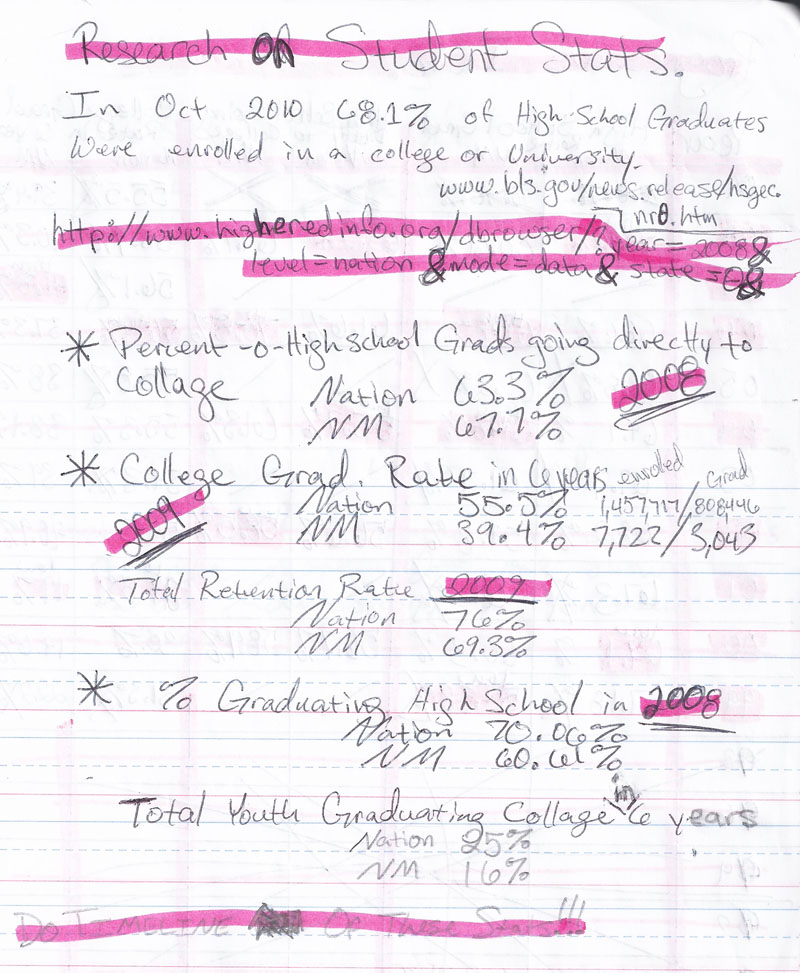 Research on Student Stats.
In Oct 2010 68.1% of High School Graduates
Were enrolled in a college or University.
www.bls.gov/news.release/hsgec.
nr0.htm
http://www.higheredinfo.org/dbrowser/?year=2008&
level=nation&mode=data&state=0&
* Percent -o- High school Grads going directly to
Collage
Nation 63.3% 2008
NM 67.7%
* College Grad. Rate in 6 years enrolled Grad
2009 Nation 55.5% 1,457,717/808,446
NM 39.4% 7,722/3,043
Total Retention Rate 2009
Nation 76%
NM 69.3%
* % Graduating High School in 2008
Nation 70.06%
NM 60.61%
Total Youth Graduating Collage in 6 years
Nation 25%
NM 16%
Do Timeline Of These Stats!!!